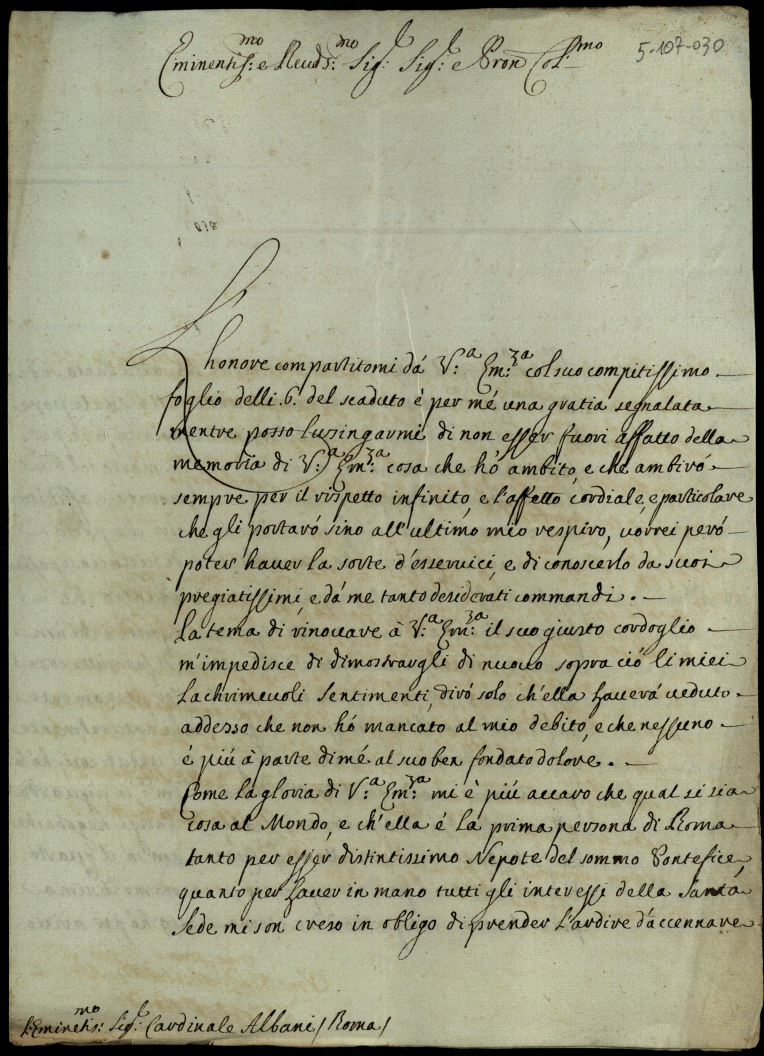 Eminentis:mo e Reuds:mo Sig:r Sig:r e Pron Col:mo
5-107-030
L'honore compartitomi dá V:a Em:za col suo compitissimo
foglio delli .6. del scaduto è per mé una gratia segnalata
mentre posso lusingarmi di non esser fuori affatto della
memoria di V:a Em:za cosa che hó ambito, e che ambiró
sempre per il rispetto infinito, e l'affetto cordiale, e particolare
che gli portaró sino all'ultimo mio respiro, uorrei peró
poter hauer la sorte d'esseruici, e di conoscerlo da suoi
pregiatissimi, e dá me tanto desiderati commandi. —
La tema di rinouare à V:a Em:za il suo giusto cordoglio
m'impedisce di dimostrargli di nuouo sopra ció li miei
Lachrimeuoli sentimenti, diró solo ch'ella hauerá ueduto
addesso che non hó mancato al mio debito, e che nessuno
é piú à parte di mé al suo ben fondato dolore. —
Come la gloria di V:a Em:za mi è piú accaro che qual si sia
cosa al Mondo, e ch'ella é la prima persona di Roma
tanto per esser distintissimo Nepote del sommo Pontefice,
quanto per hauer in mano tutti gli interessi della Santa
Sede mi son creso in obligo di prender l'ardire d'accennare
L'Eminetis:mo Sig:r Cardinale Albani / Roma /